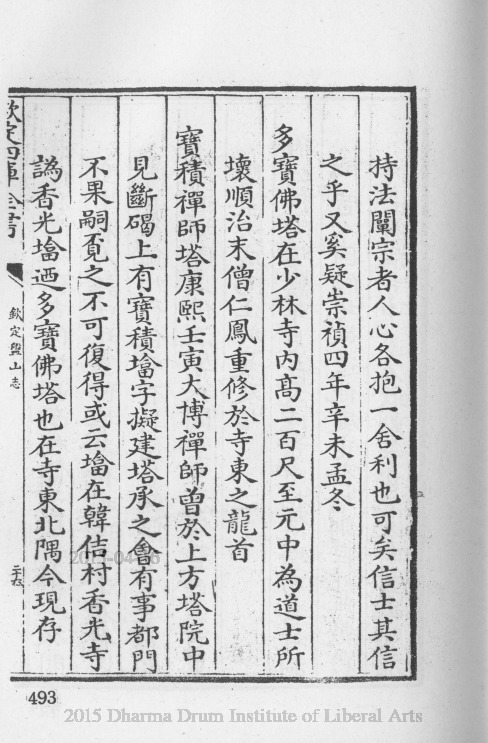 持法闡宗者人心各抱一舍利也可矣信士其信
之乎又奚疑崇禎四年辛未孟冬
多寶佛塔在少林寺内髙二百尺至元中為道士所
壞順治末僧仁鳳重修於寺東之龍首
寶積禪師塔康熙壬寅大博禪師曾於上方塔院中
見斷碣上有寶積墖字擬建塔承之會有事都門
不果嗣覔之不可復得或云墖在韓佶村香光寺
譌香光墖迺多寶佛塔也在寺東北隅今現存
欽定四庫全書
欽定盤山志
493
2015 Dharma Drum Institute of Liberal Arts